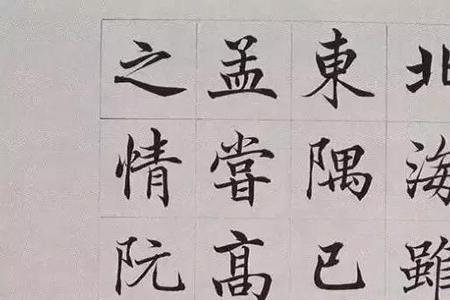 北海雖
東隅已
孟嘗高
之情阮